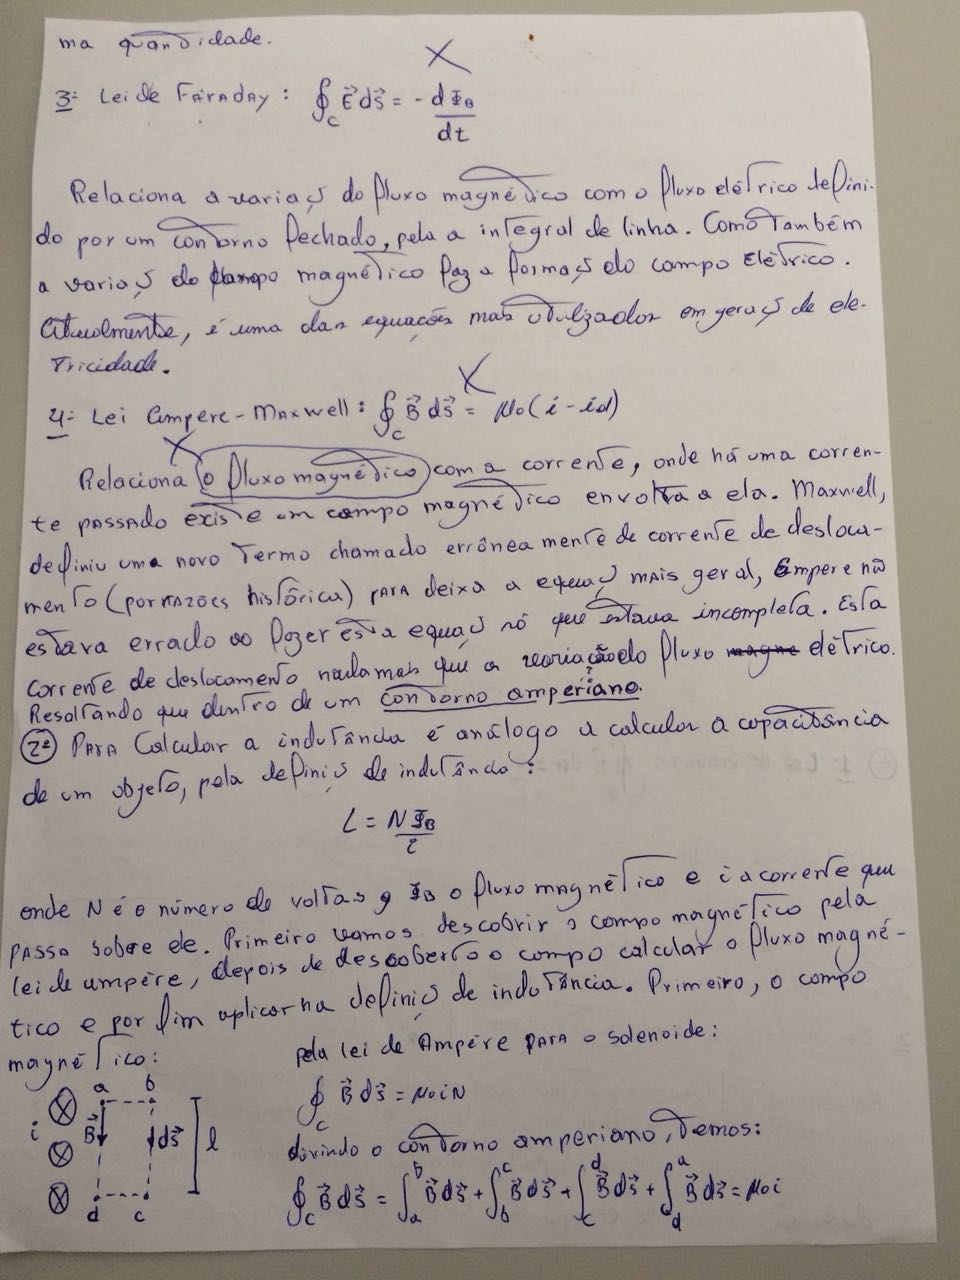 ma quantidade.
3- Lei de Faraday: ∮c E⃗ ds⃗ = - dΦB/dt
Relaciona a variaç do fluxo magnético com o fluxo elétrico defini-
do por um contorno fechado, pela a integral de linha. Como também
a variaç do campo magnético faz a formaç do campo Elétrico.
Atualmente, é uma das equações mais utulzador em geraç de ele-
tricidade.
4- Lei Ampere-Maxwell: ∮c B⃗ ds⃗ = μo(i - id)
Relaciona o fluxo magnético com a corrente, onde há uma corren-
te passado existe um campo magnético envolta a ela. Maxwell,
definiu uma novo termo chamado errôneamente de corrente de desloca-
mento (por razões histórica) para deixa a equaç mais geral, Ampere nã
estava errado ao fazer esta equaç só que estava incompleta. Esta
corrente de deslocamento nadamais que a variação do fluxo magne elétrico.
Resoltando que dentro de um contorno amperiano.
2ª Para Calcular a indutância é análogo a calcular a capacitância
de um objeto, pela definiç de indutânda:
L = NΦB/i
onde N é o número de voltas, ΦB o fluxo magnético e i a corrente que
passa sobre ele. Primeiro vamos descobrir o campo magnético pela
lei de ampère, depois de descoberto o campo calcular o fluxo magné-
tico e por fim aplicar na definiç de indutância. Primeiro, o campo
magnético:
pela lei de Ampère para o solenoide:
a b
i B⃗ ds⃗ l
d c
∮c B⃗ ds⃗ = μoiN
divindo o contorno amperiano, temos:
∮c B⃗ ds⃗ = ∫ab B⃗ ds⃗ + ∫bc B⃗ ds⃗ + ∫cd B⃗ ds⃗ + ∫da B⃗ ds⃗ = μoi